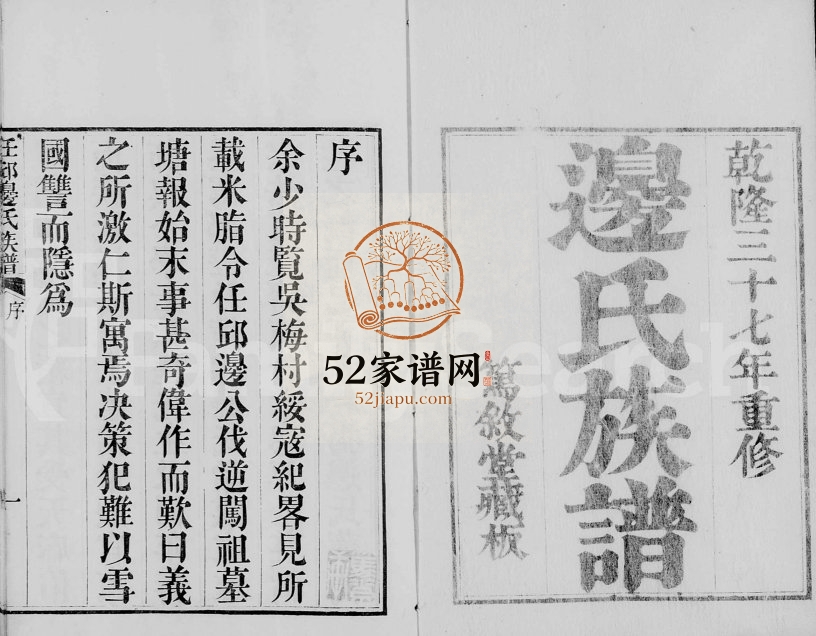 乾隆三十七年重修
邊氏族譜
篤敘堂藏板
序
余少時覽吳梅村綏寇紀畧見所
載米脂令任邱邊公伐逆闖祖墓
塘報始末事甚奇偉作而歎曰義
之所激仁斯寓焉决策犯難以雪
國讐而隱爲
任邱邊氏族譜 序 一
52家谱网
52jiapu.com